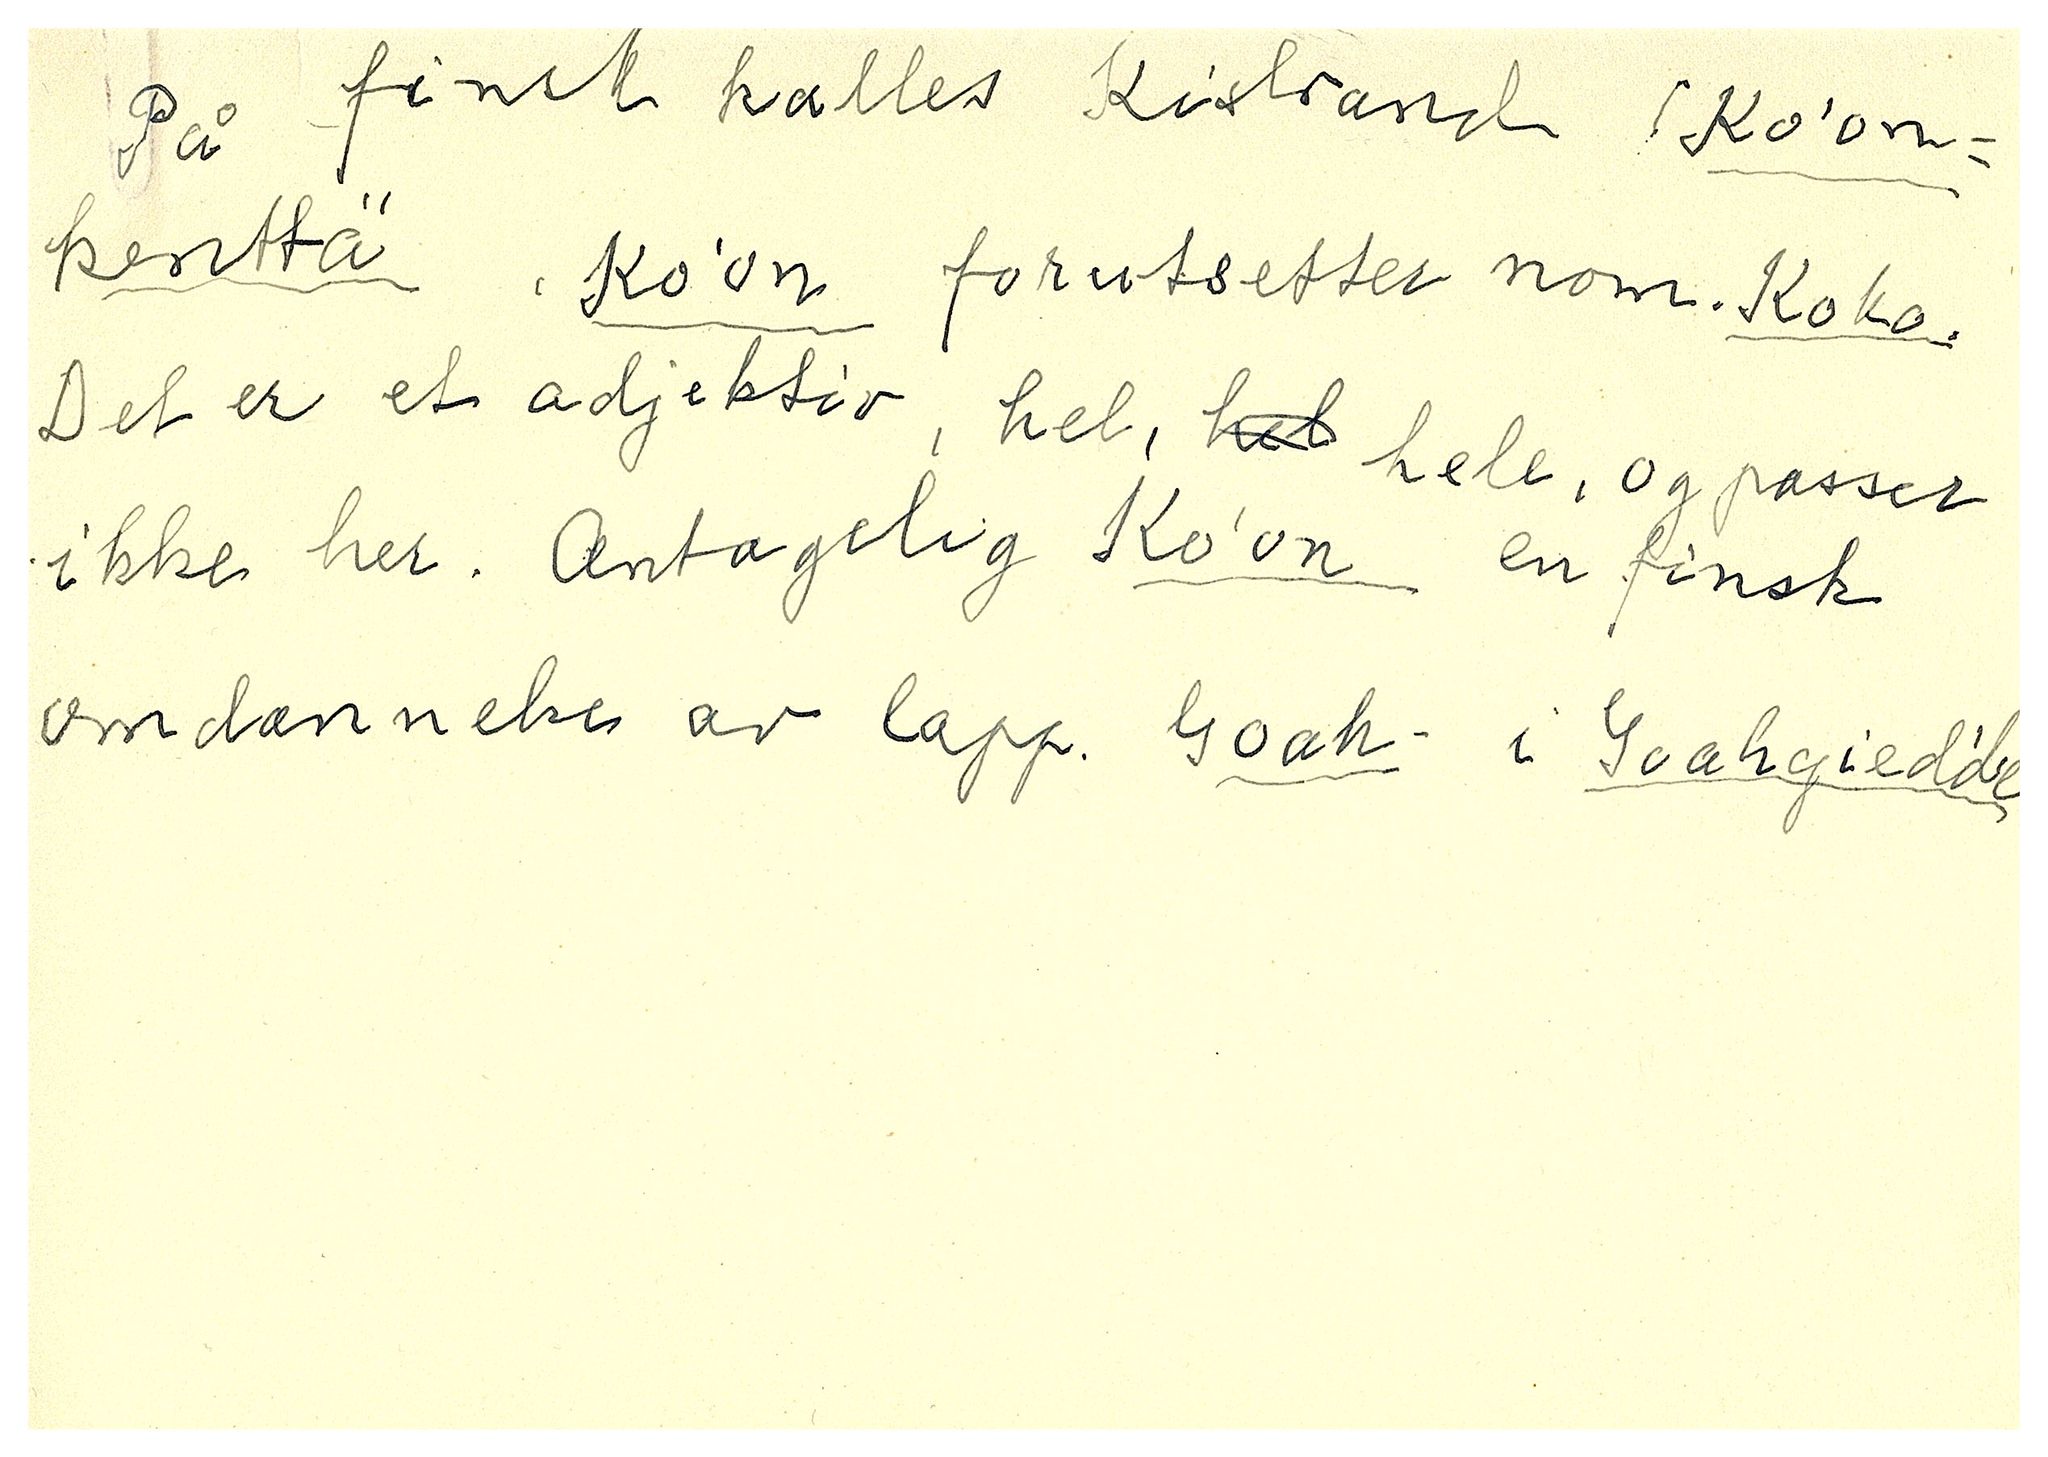 På finsk kalles Kistrand Ko'on=
kenttä. Ko'on forutsetter nom. Koko.
Det er et adjektiv, hel, hel hele, og passer
ikke her. Antagelig Ko'on en finsk
omdannelse av lapp. Goah- i Goahgied'de